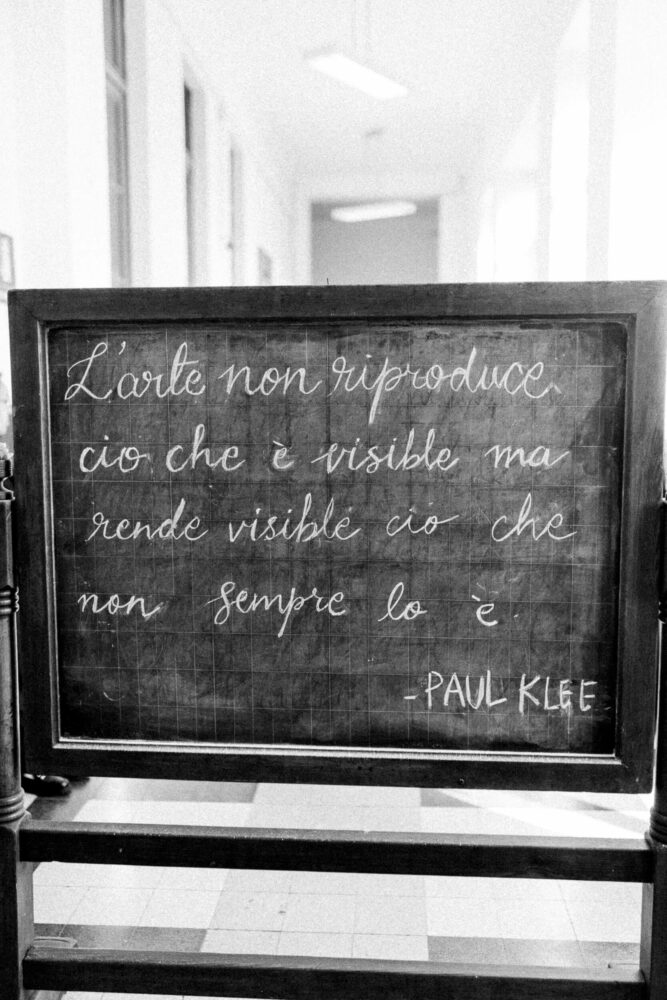 L'arte non riproduce
ciò che è visibile ma
rende visibile ciò che
non sempre lo è.
-PAUL KLEE